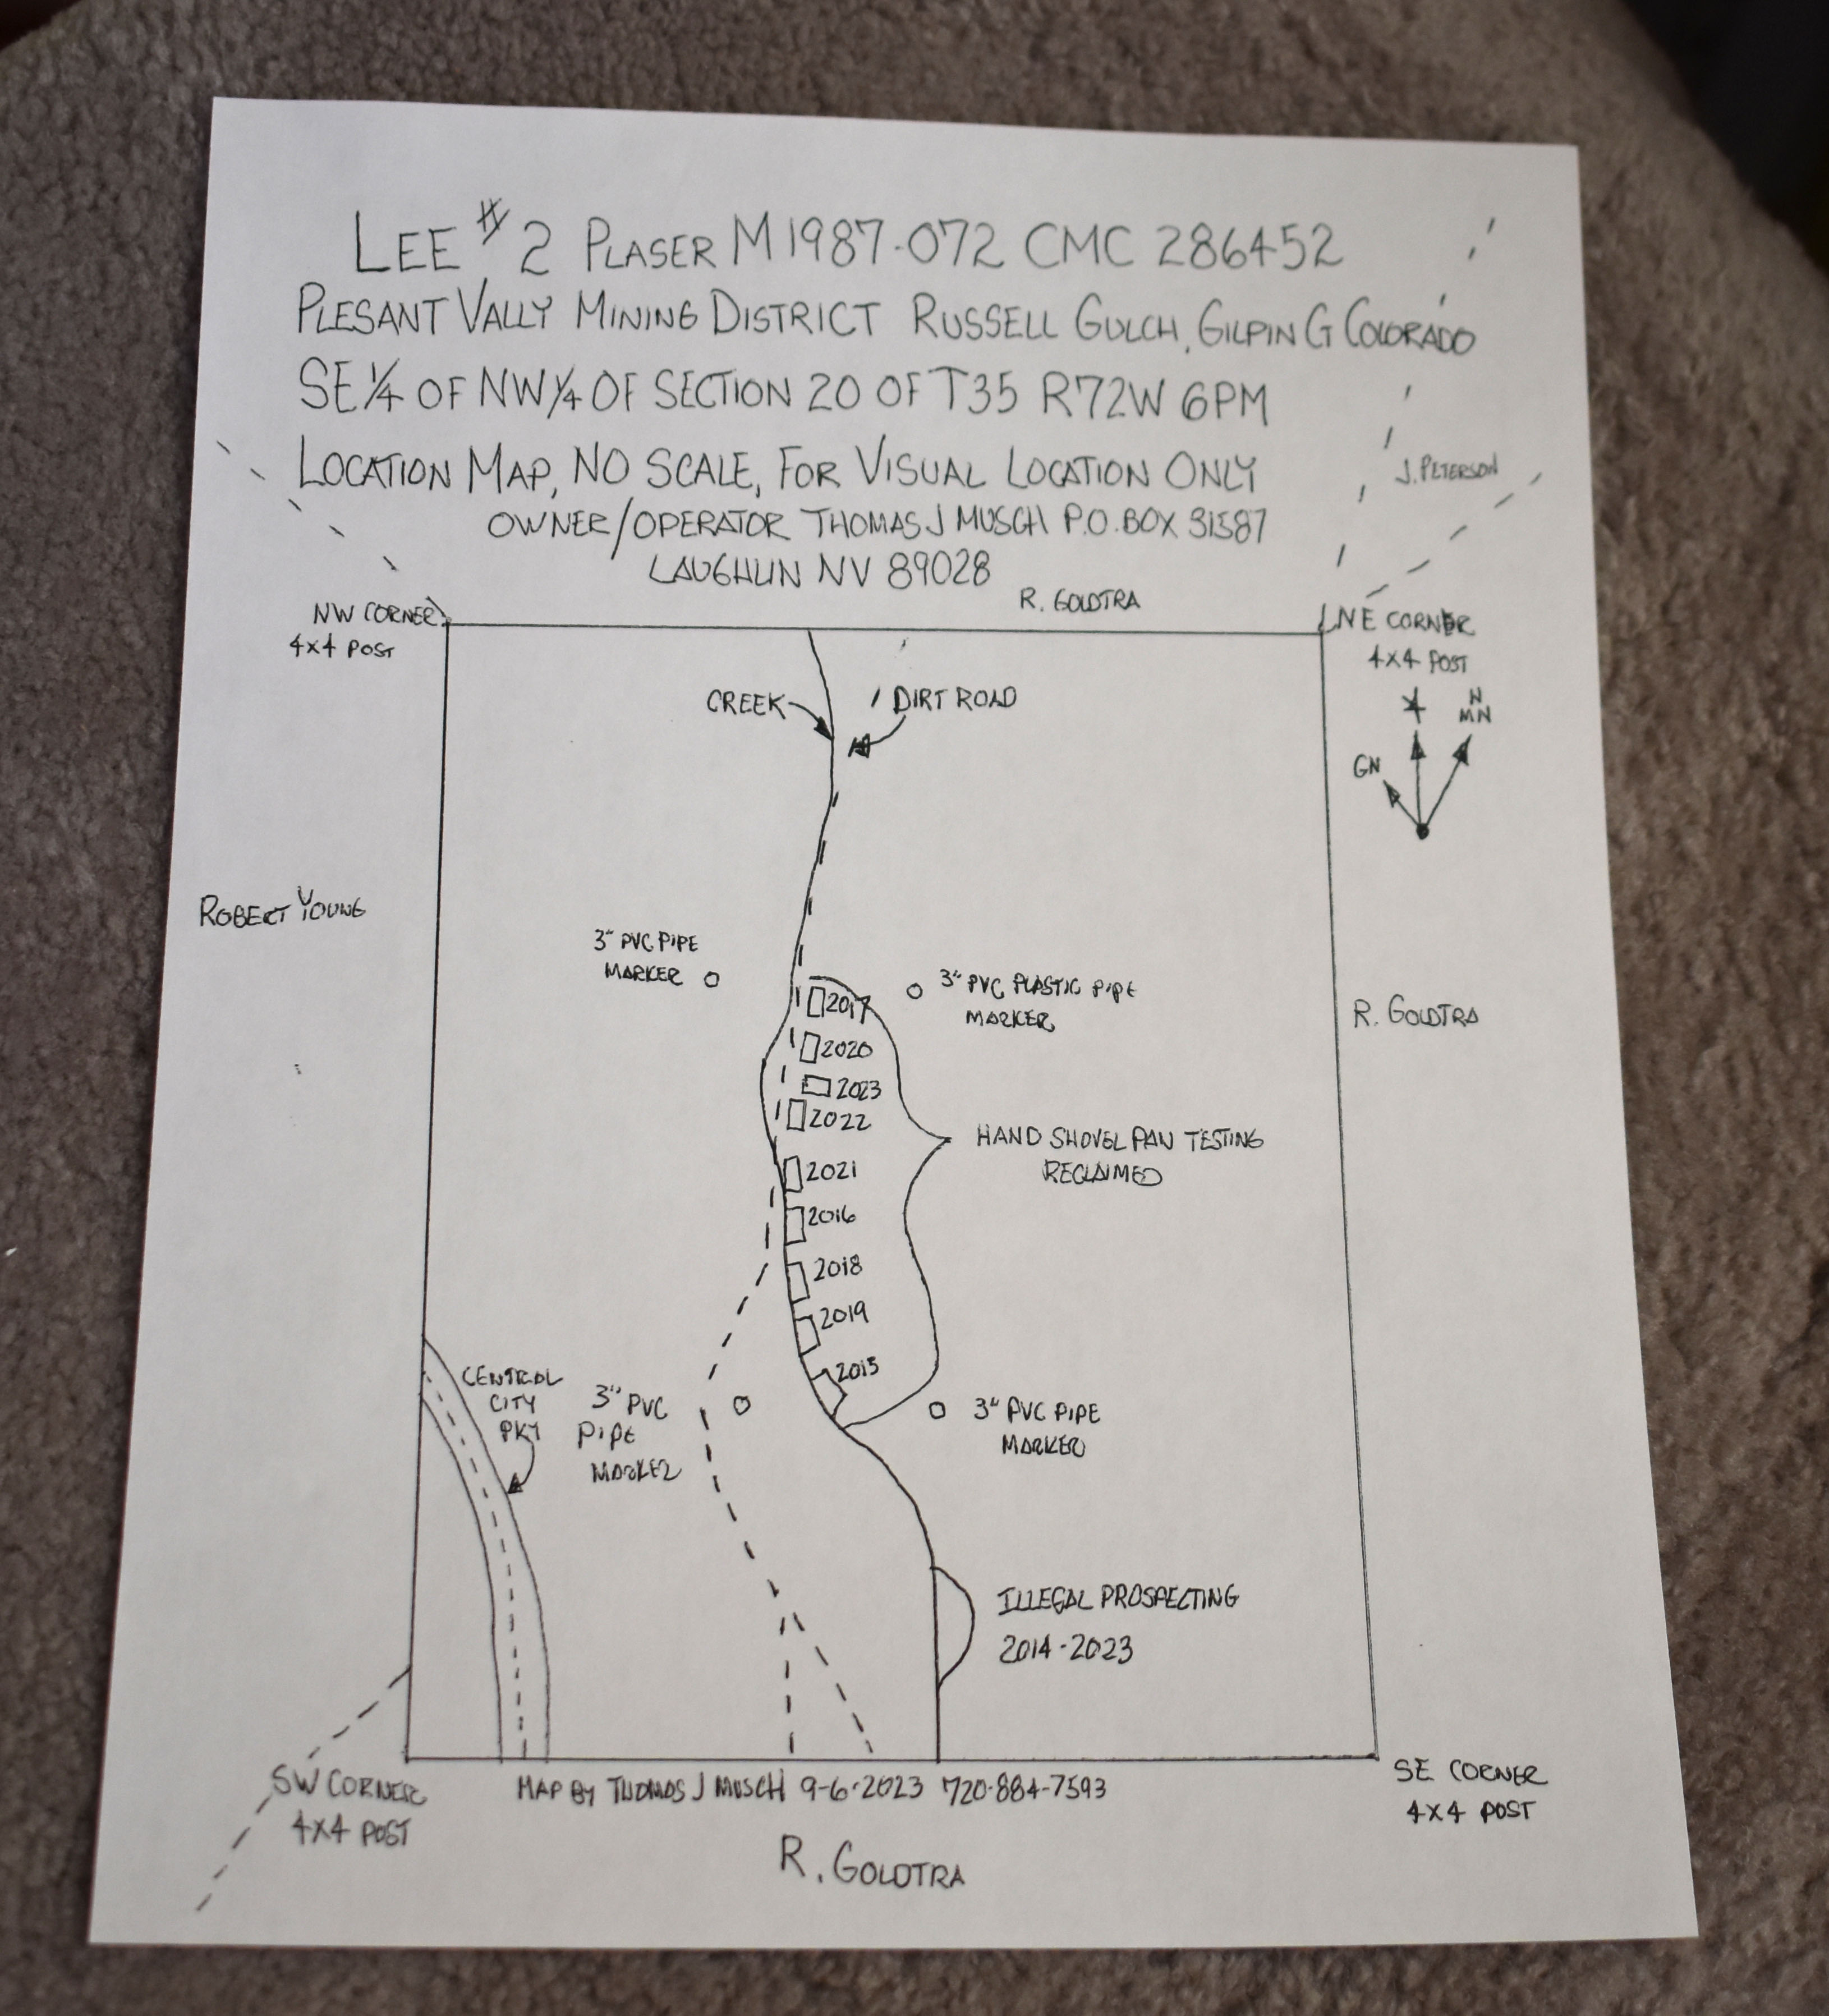 LEE #2 PLASER M1987-072 CMC 286452
PLESANT VALLY MINING DISTRICT RUSSELL GULCH, GILPIN CO COLORADO
SE 1/4 OF NW 1/4 OF SECTION 20 OF T3S R72W 6PM
LOCATION MAP, NO SCALE, FOR VISUAL LOCATION ONLY
OWNER/OPERATOR THOMAS J MUSCH P.O. BOX 31587
LAUGHLIN NV 89028
J. PETERSON
R. GOLDTRA
NW CORNER
4x4 POST
NE CORNER
4x4 POST
CREEK
DIRT ROAD
N
MN
GN
ROBERT YOUNG
3" PVC PIPE
MARKER
3" PVC PLASTIC PIPE
MARKER
R. GOLDTRA
2017
2020
2023
2022
2021
2016
2018
2019
2015
HAND SHOVEL PAN TESTING
RECLAIMED
CENTRAL
CITY
PKY
3" PVC
PIPE
MARKER
3" PVC PIPE
MARKER
ILLEGAL PROSPECTING
2014-2023
SW CORNER
4x4 POST
MAP BY THOMAS J MUSCH 9-6-2023 720-884-7593
SE CORNER
4x4 POST
R. GOLDTRA